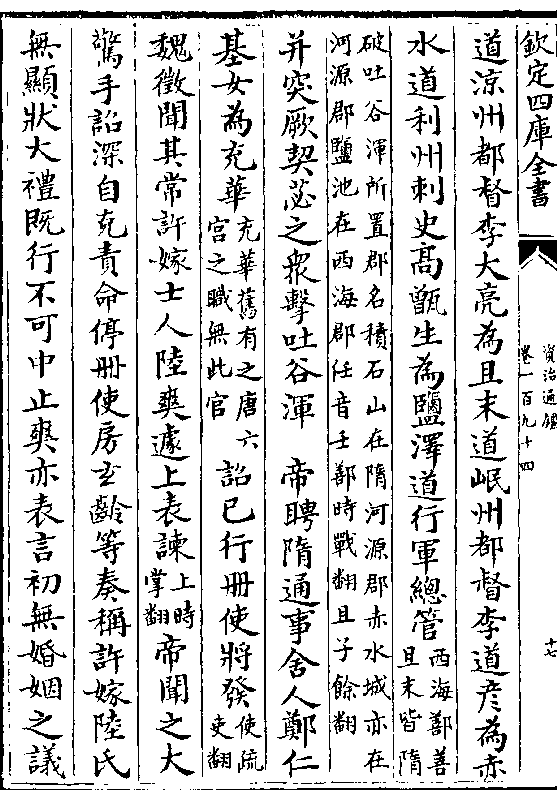 欽定四庫全書
資治通鑑
卷一百九十四
十七
道涼州都督李大亮為且末道岷州都督李道彦為赤
水道利州刺史髙甑生為鹽澤道行軍總管
西海鄯善
且末皆隋
破吐谷渾所置郡名積石山在隋河源郡赤水城亦在
河源郡鹽池在西海郡任音壬鄯時戰翻且子餘翻
并突厥契苾之衆擊吐谷渾　帝聘隋通事舍人鄭仁
基女為充華
充華舊有之唐六
宫之職無此官
詔已行册使將發
使疏
吏翻
魏徵聞其常許嫁士人陸爽遽上表諫
上時
掌翻
帝聞之大
驚手詔深自克責命停册使房玄齡等奏稱許嫁陸氏
無顯狀大禮既行不可中止爽亦表言初無婚姻之議